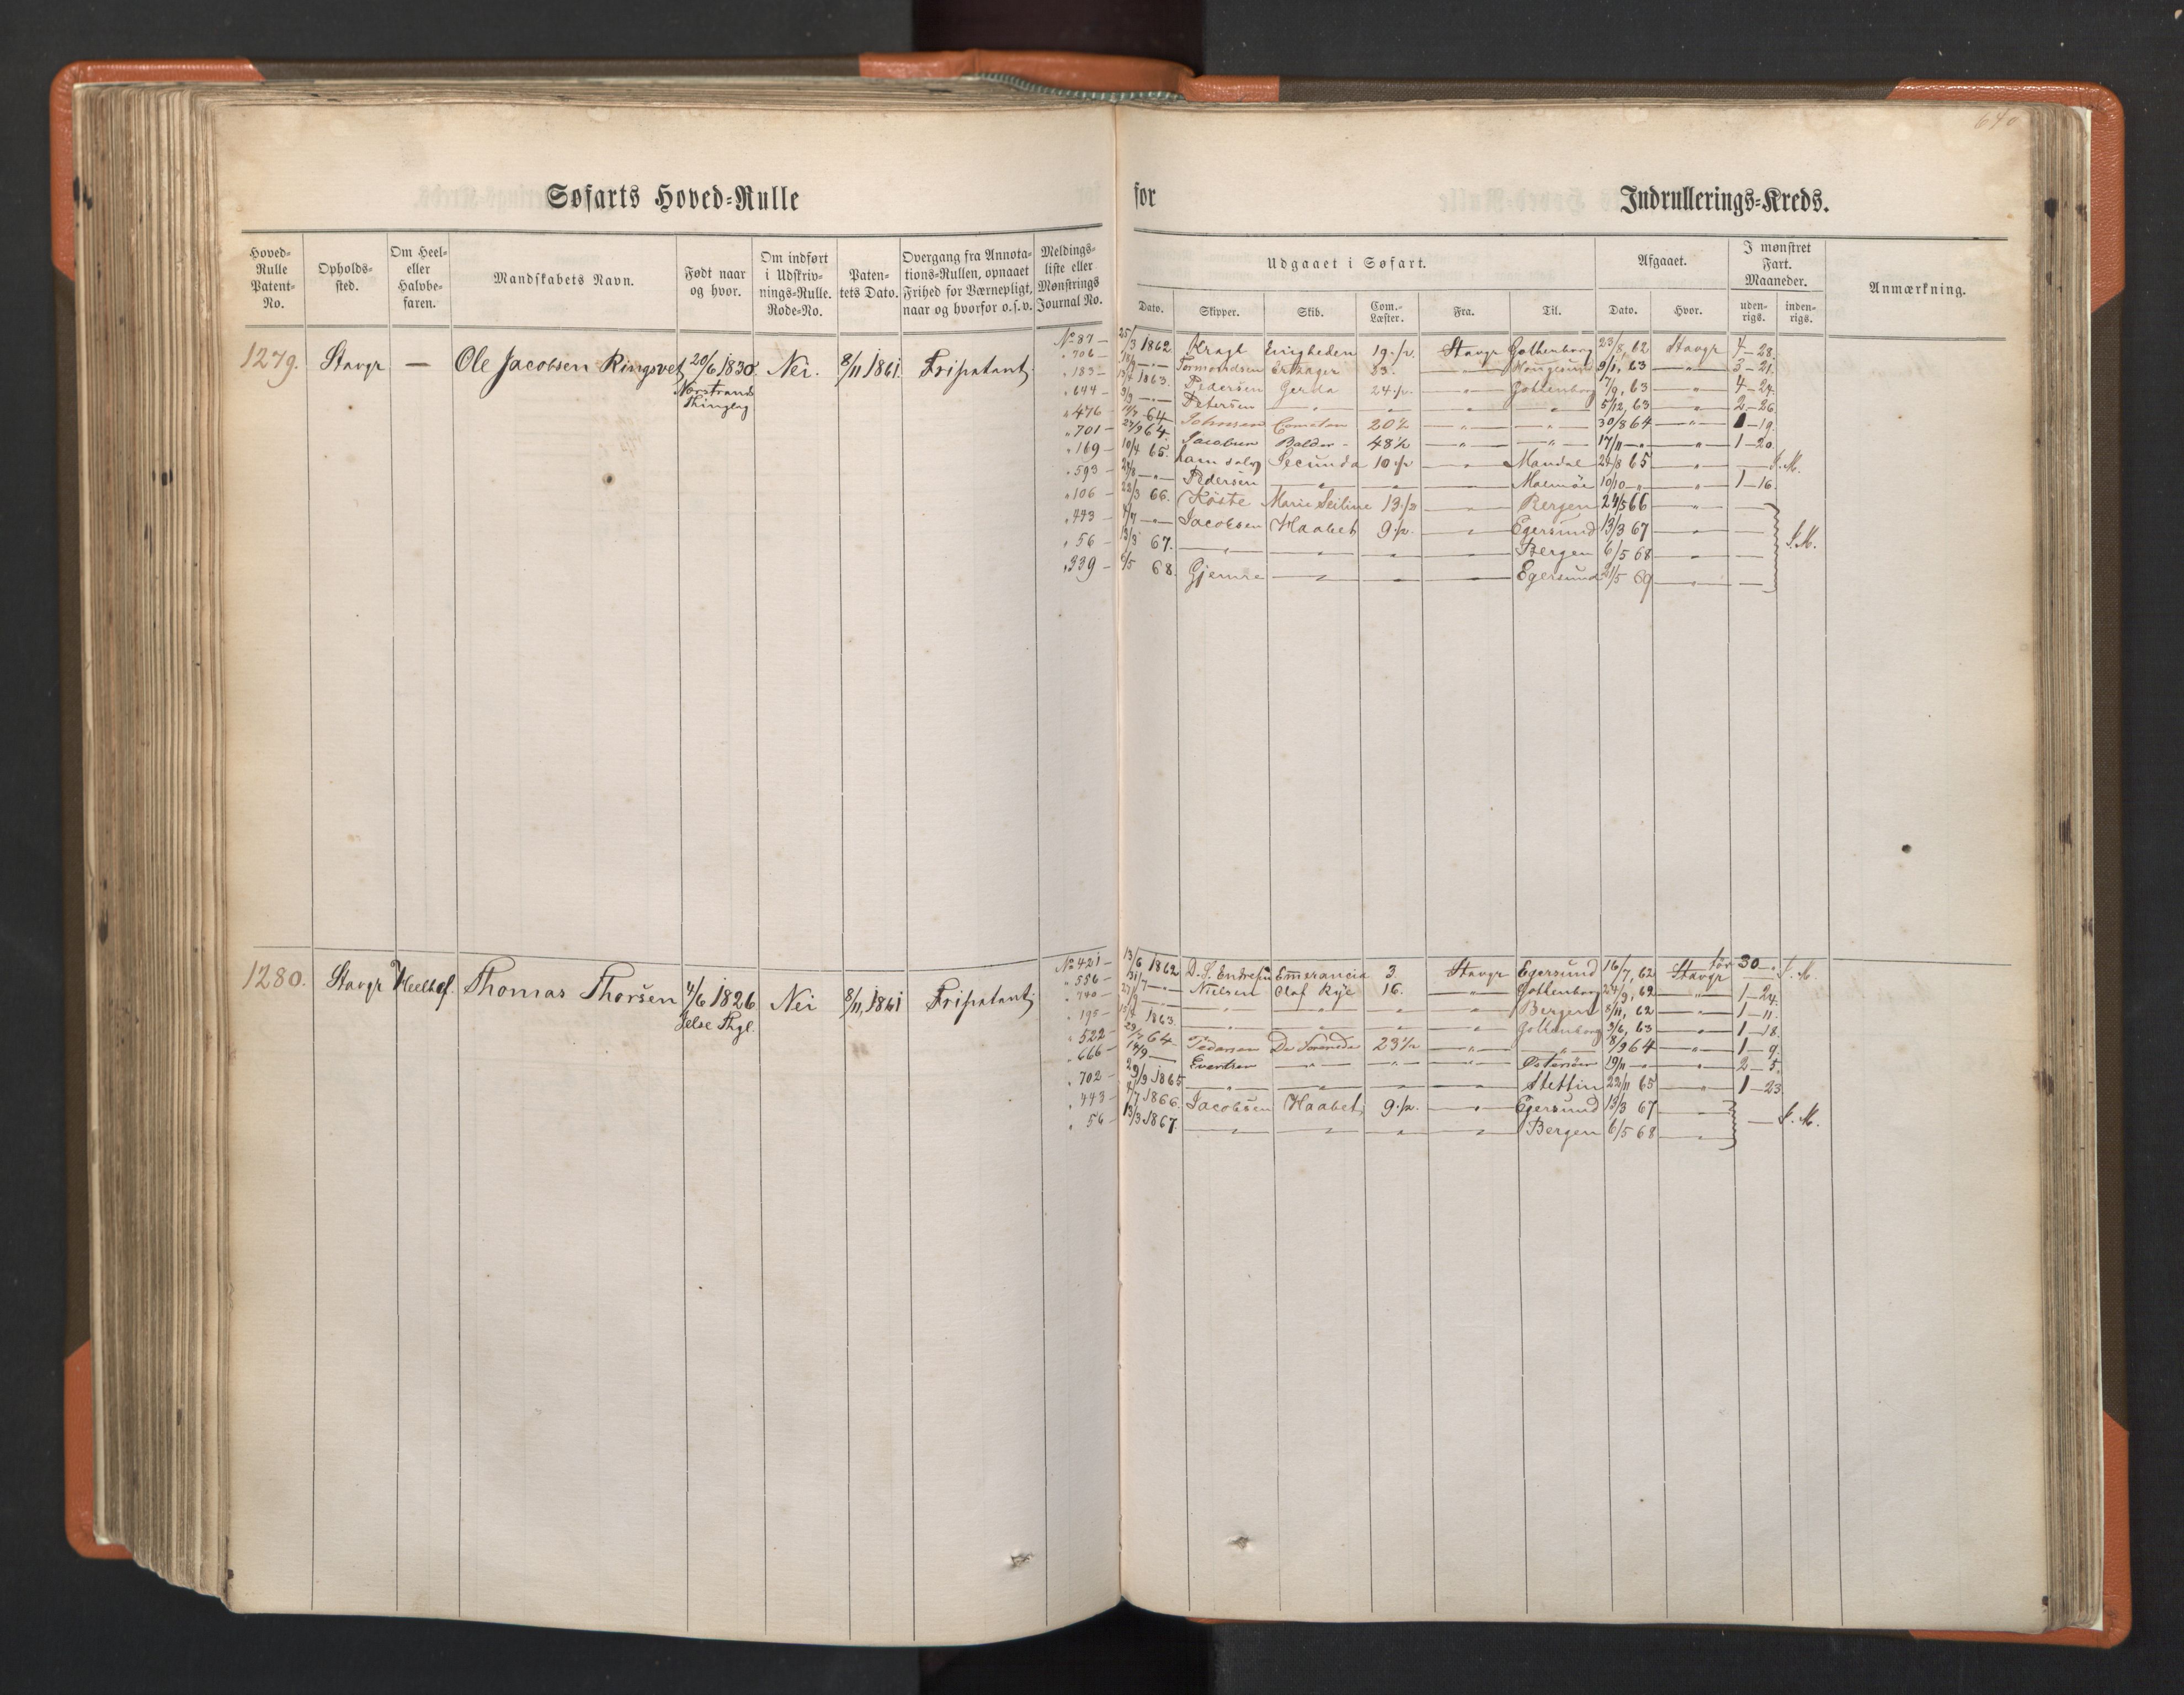 640
Søfarts Hoved-Rulle for Indrullerings-Kreds.
Hoved-Rulle Patent-No. Opholds-sted. Om Heel- eller Halvbe-faren. Mandskabets Navn. Født naar og hvor. Om indført i Udskriv-nings-Rulle. Rode-No. Paten-tets Dato. Overgang fra Annota-tions-Rullen, opnaaet Frihed for Værnepligt, naar og hvorfor o.s.v. Meldings-liste eller Mønstrings Journal No.
Udgaaet i Søfart. Afgaaet. I mønstret Fart. Maaneder. Anmærkning.
Dato. Skipper. Skib. Com.-Læster. Fra. Til. Dato. Hvor. uden-rigs. inden-rigs.
1279. Stavgr — Ole Jacobsen Ringsvet 20/6 1830. Nei. 8/11 1861. Fripatent
Norstrands Thinglag
No 87 — 25/3 1862 Kragh Enigheden 19 Stavgr Gothenborg 23/8, 62 Stavgr 4—28.
" 706 — Tormondsen 53. — " — 9/1, 63 — " — 3—21.
" 183 — 1863. Pedersen Gerda 24 — " — Gothenborg 17/9, 63 — " — 4—24.
" 644 — Petersen — " — — " — 5/12, 63 — " — 2—26.
" 476 — 64 Johnsen 20½ — " — — " — 30/8 64 — " — 1—19.
" 701 — 27/9 64 Jacobsen Balder 48½ — " — — " — 17/11 — " — 1—20.
" 169 — 10/4 65. Secunda 10 — " — Mandal 24/8 65 — " — — S.M.
" 593 — 24/8 — " — Pedersen — " — — " — Malmöe 10/10 — " — 1—16.
" 106 — 22/3 66. Köste Marie Seiline 13 — " — Bergen 24/5 66 — " — —
" 443 — 4/7 — " — Jacobsen Haabet 9 — " — Egersund 13/3 67 — " — — S.M.
" 56 — 13/3 67. — " — — " — Bergen 6/5 68 — " — —
" 339 — 6/5 68. Gjemre — " — — " — Egersund 21/5 69 — " — —
1280. Stavgr Heelbef. Thomas Thorsen 4/6 1826 Nei 8/11, 1861 Fripatent
Jelse Thgl.
No 421 — 13/6 1862 D. S. Endresen Emerancia 3. Stavgr Egersund 16/7, 62 Stavgr før 30 — S.M.
" 556 — 31/7 — " — Nielsen Olaf Rye 16. — " — Gothenborg 24/9, 62 — " — 1—24.
" 740 — — " — — " — Bergen 8/11, 62 — " — 1—11.
" 195 — 1863. — " — — " — Gothenborg 3/6, 63 — " — 1—18.
" 522 — 64 Pedersen 23½ — " — — " — 8/9 64 — " — 1—9.
" 666 — 14/9 — Evertsen — " — — " — Østersøen 19/11 — " — 2—5.
" 702 — 29/9 1865 — " — — " — Stettin 22/11 65 — " — 1—23.
" 443 — 4/7 1866. Jacobsen Haabet 9 — " — Egersund 13/3 67 — — S.M.
" 56 — 13/3 1867. — " — — " — Bergen 6/5 68 — " —